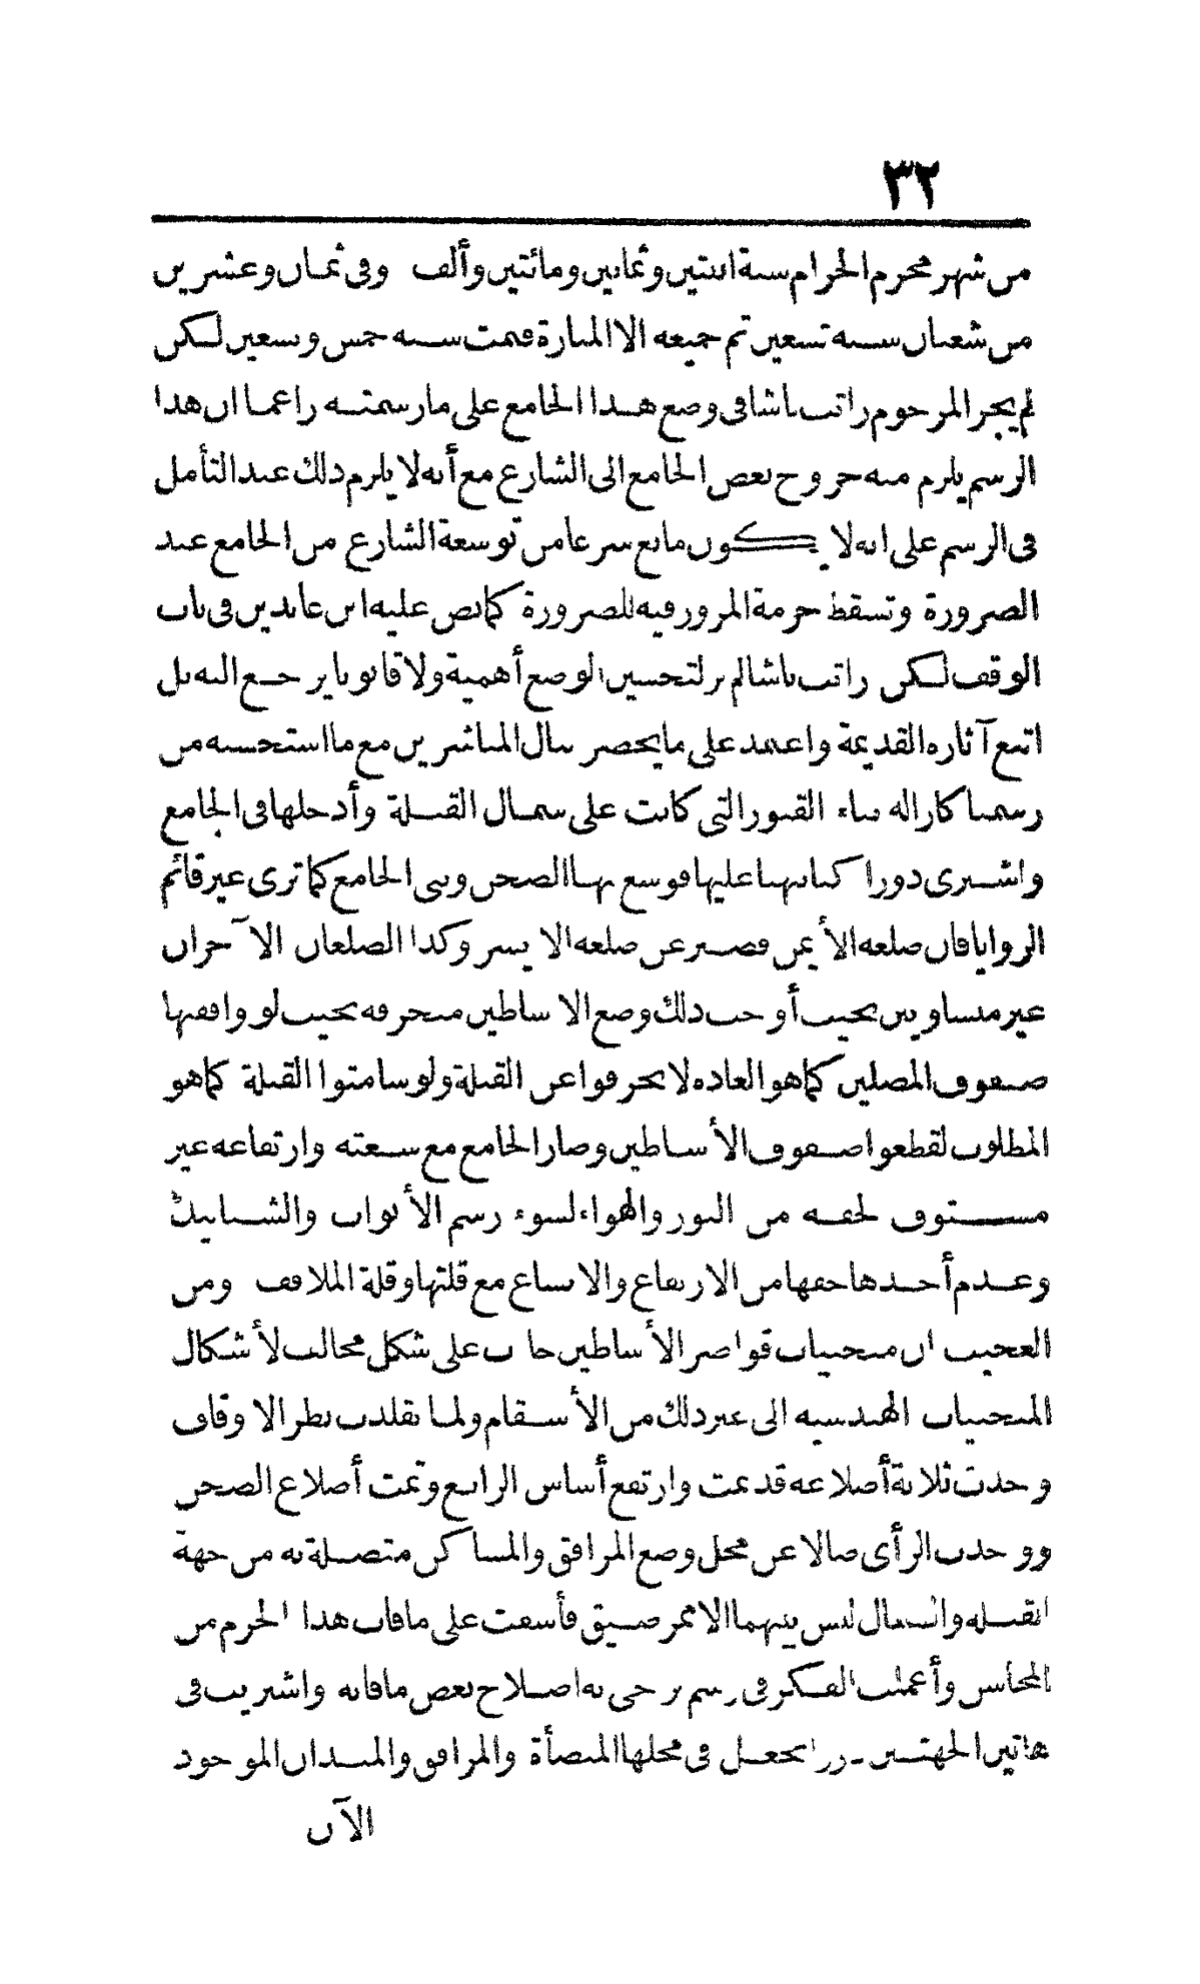 ٣٢
من شهر محرم الحرام سنة اثنتين وثمانين ومائتين وألف وفى ثمان وعشرين
من شعبان سنة تسعين تم جميعه الا المنارة فتمت سنه خمس وتسعين لكن
لم يجر المرحوم راتب باشا فى وضع هذا الجامع على ما رسمته زاعما ان هذا
الرسم يلزم منه خروج بعض الجامع الى الشارع مع أنه لا يلزم ذلك عند التأمل
فى الرسم على انه لا يكون مانع شرعا من توسعة الشارع من الجامع عند
الضرورة وتسقط حرمة المرور فيه للضرورة كما نص عليه ابن عابدين فى باب
الوقف لكن راتب باشا لم ير لتحسين الوضع أهمية ولا قانونا يرجع اليه بل
اتبع آثاره القديمة واعتمد على ما يحضر ببال المباشرين مع ما استحسنه من
رسمنا كازاله بناء القبور التى كانت على شمال القبلة وأدخلها فى الجامع
واشترى دورا كنا نبهنا عليها فوسع بها الصحن وبنى الجامع كما ترى غير قائم
الزوايا فان ضلعه الأيمن قصير عن ضلعه الايسر وكذا الضلعان الآخران
غير متساويين بحيث أوجب ذلك وضع الاساطين منحرفه بحيث لو وافقها
صفوف المصلين كما هو العاده لانحرفوا عن القبلة ولو سامتوا القبلة كما هو
المطلوب لقطعوا صفوف الأساطين وصار الجامع مع سعته وارتفاعه غير
مستوف لحقه من النور والهواء لسوء رسم الأبواب والشبابيك
وعدم أخذها حقها من الارتفاع والاتساع مع قلتها وقلة الملاقف ومن
العجيب ان منحنيات قواصر الأساطين جاءت على شكل مخالف لأشكال
المنحنيات الهندسيه الى غير ذلك من الأسقام ولما تقلدت نظر الاوقاف
وجدت ثلاثة أضلاعه قد تمت وارتفع أساس الرابع وتمت أضلاع الصحن
ووجدت الرأى ضالا عن محل وضع المرافق والمساكن متصلة به من جهة
القبله والشمال ليس بينهما الا ممر ضيق فأسفت على ما فات هذا الحرم من
المحاسن وأعملت الفكر فى رسم يرجى به اصلاح بعض ما فاته واشتريت فى
هاتين الجهتين دورا تجعل فى محلها الميضأة والمرافق والميدان الموجود
الآن